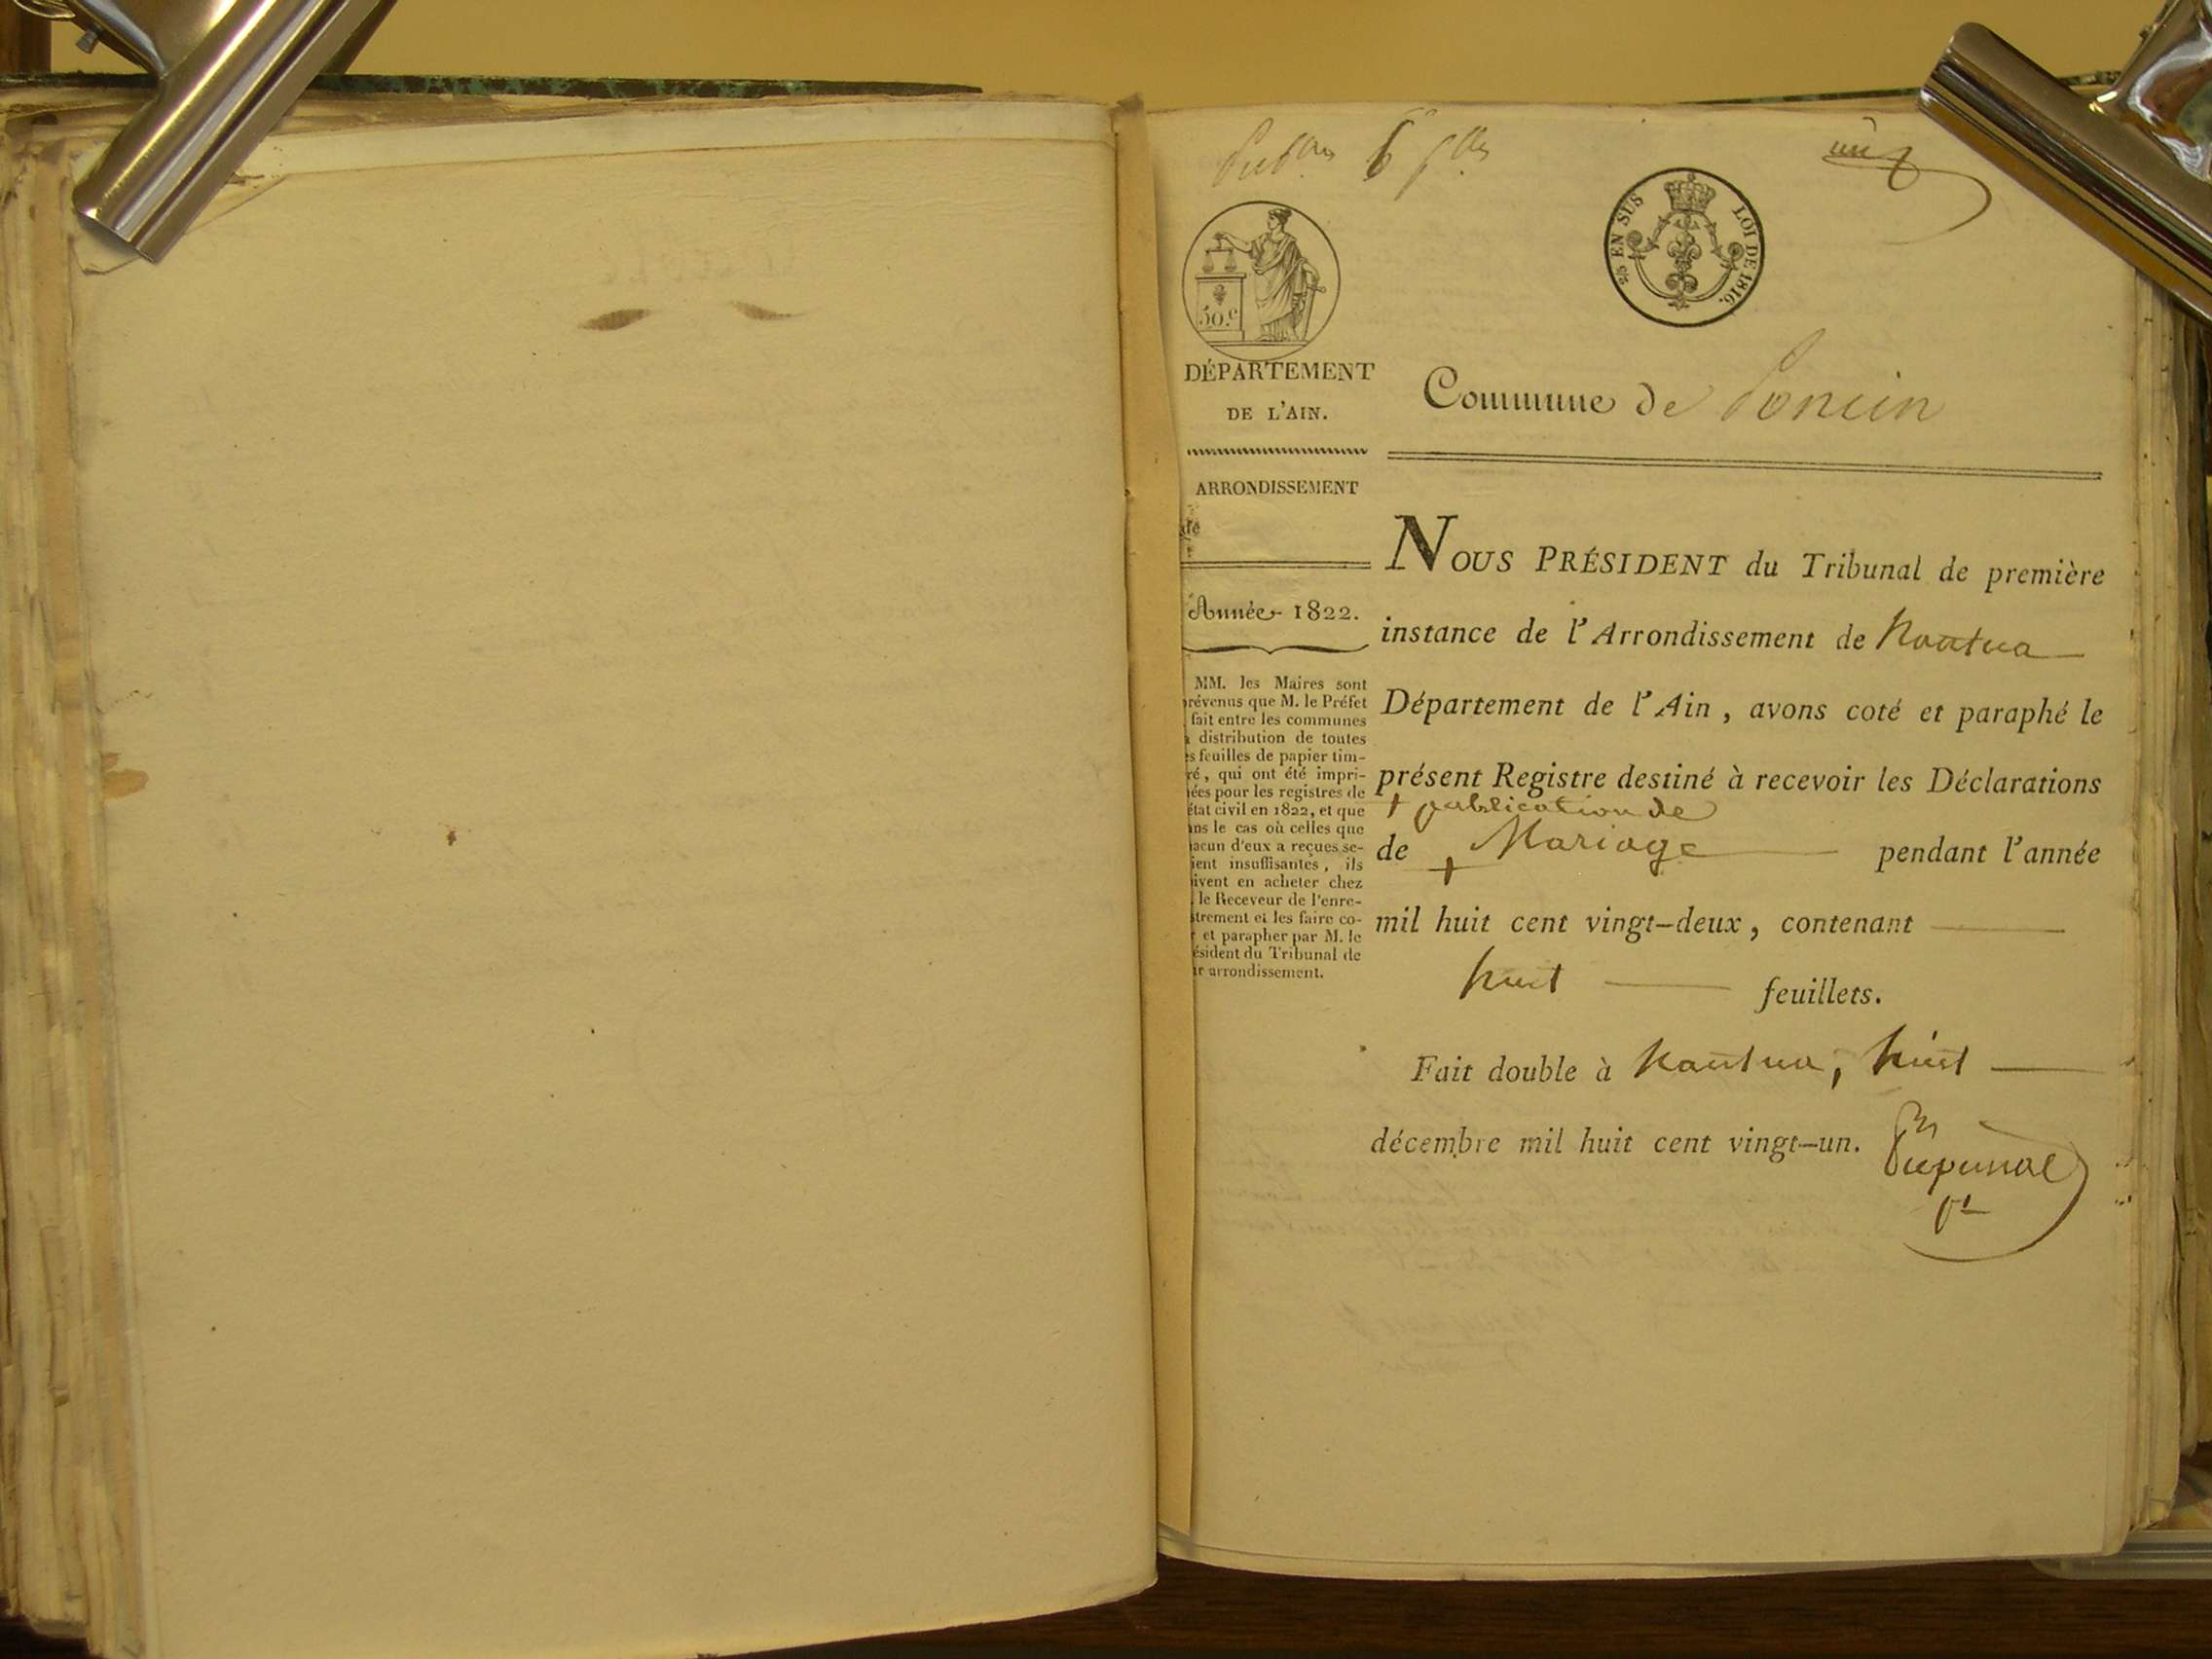 6
un
25 EN SUS LOI DE 1816.
50.c
DÉPARTEMENT
DE L'AIN.
ARRONDISSEMENT
de
Année 1822.
MM. les Maires sont
révenus que M. le Préfet
fait entre les communes
distribution de toutes
s feuilles de papier tim-
ré, qui ont été impri-
ées pour les registres de
état civil en 1822, et que
ns le cas où celles que
acun d'eux a reçues se-
ient insuffisantes, ils
ivent en acheter chez
le Receveur de l'enre-
trement et les faire co-
et parapher par M. le
ésident du Tribunal de
r arrondissement.
Commune de Poncin
NOUS PRÉSIDENT du Tribunal de première
instance de l'Arrondissement de Nantua
Département de l'Ain, avons coté et paraphé le
présent Registre destiné à recevoir les Déclarations
+ publication de
de + Mariage pendant l'année
mil huit cent vingt-deux, contenant
huit feuillets.
Fait double à Nantua, huit
décembre mil huit cent vingt-un.